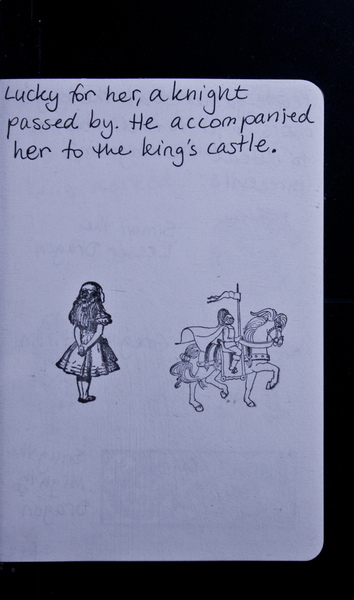 Lucky for her, a knight
passed by. He accompanied
her to the king's castle.